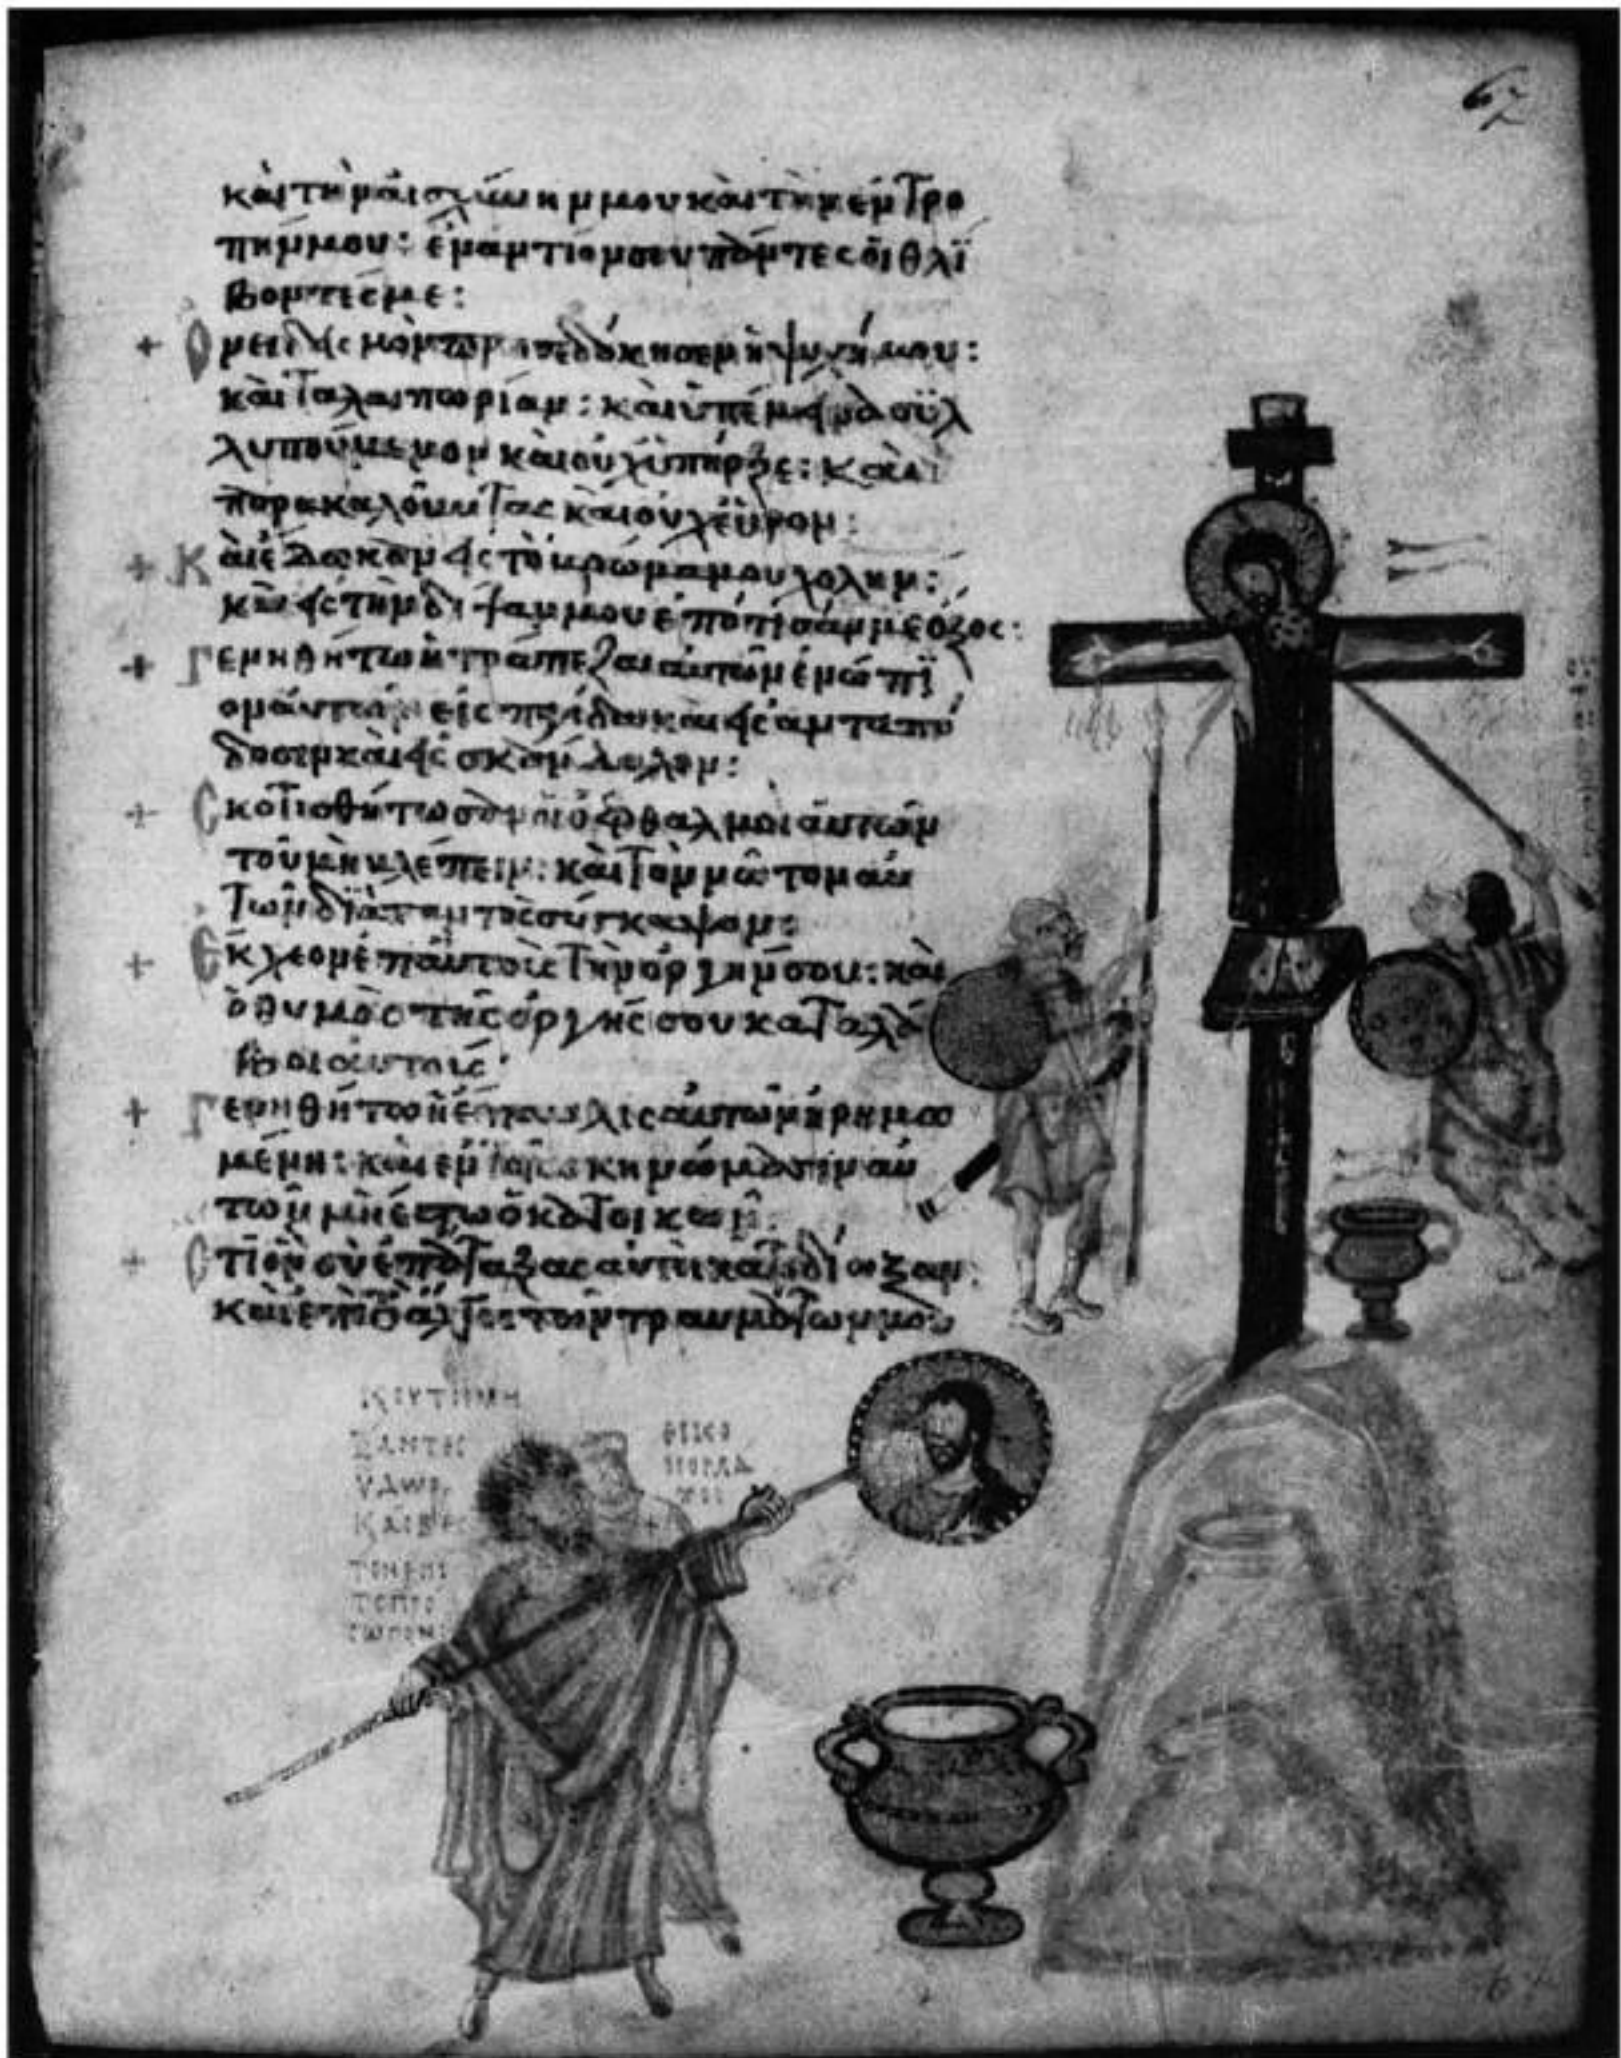 67
καὶ τὴν αἰσχύνην μου καὶ τὴν ἐντρο
πήν μου: ἐναντίον σου πάντες οἱ θλί
βοντές με:
+ Ὀνειδισμὸν προσεδόκησεν ἡ ψυχή μου:
καὶ ταλαιπωρίαν: καὶ ὑπέμεινα συλ
λυπούμενον καὶ οὐχ ὑπῆρξε: καὶ
παρακαλοῦντας καὶ οὐχ εὗρον:
+ Καὶ ἔδωκαν εἰς τὸ βρῶμά μου χολήν:
καὶ εἰς τὴν δίψαν μου ἐπότισάν με ὄξος:
+ Γενηθήτω ἡ τράπεζα αὐτῶν ἐνώπι
ον αὐτῶν εἰς παγίδα καὶ εἰς ἀνταπό
δοσιν καὶ εἰς σκάνδαλον:
+ Σκοτισθήτωσαν οἱ ὀφθαλμοὶ αὐτῶν
τοῦ μὴ βλέπειν: καὶ τὸν νῶτον αὐ
τῶν διὰ παντὸς σύγκαμψον:
+ Ἔκχεον ἐπ' αὐτοὺς τὴν ὀργήν σου: καὶ
ὁ θυμὸς τῆς ὀργῆς σου καταλά
βοι αὐτούς:
+ Γενηθήτω ἡ ἔπαυλις αὐτῶν ἠρημω
μένη: καὶ ἐν τοῖς σκηνώμασιν αὐ
τῶν μὴ ἔστω ὁ κατοικῶν:
+ Ὅτι ὃν σὺ ἐπάταξας αὐτοὶ κατεδίωξαν:
καὶ ἐπὶ τὸ ἄλγος τῶν τραυμάτων μου
ΚΟΥΤΟΙ ΜΗ
ΞΑΝΤΕΣ
ΥΔΩΡ
ΚΑΙ ΑΣΒΕΣ
ΤΟΝ ΕΠΙ
ΤΟ ΠΡΟ
ΣΩΠΟΝ
ΕΙΚΟ
ΝΟΜΑ
ΧΟΙ